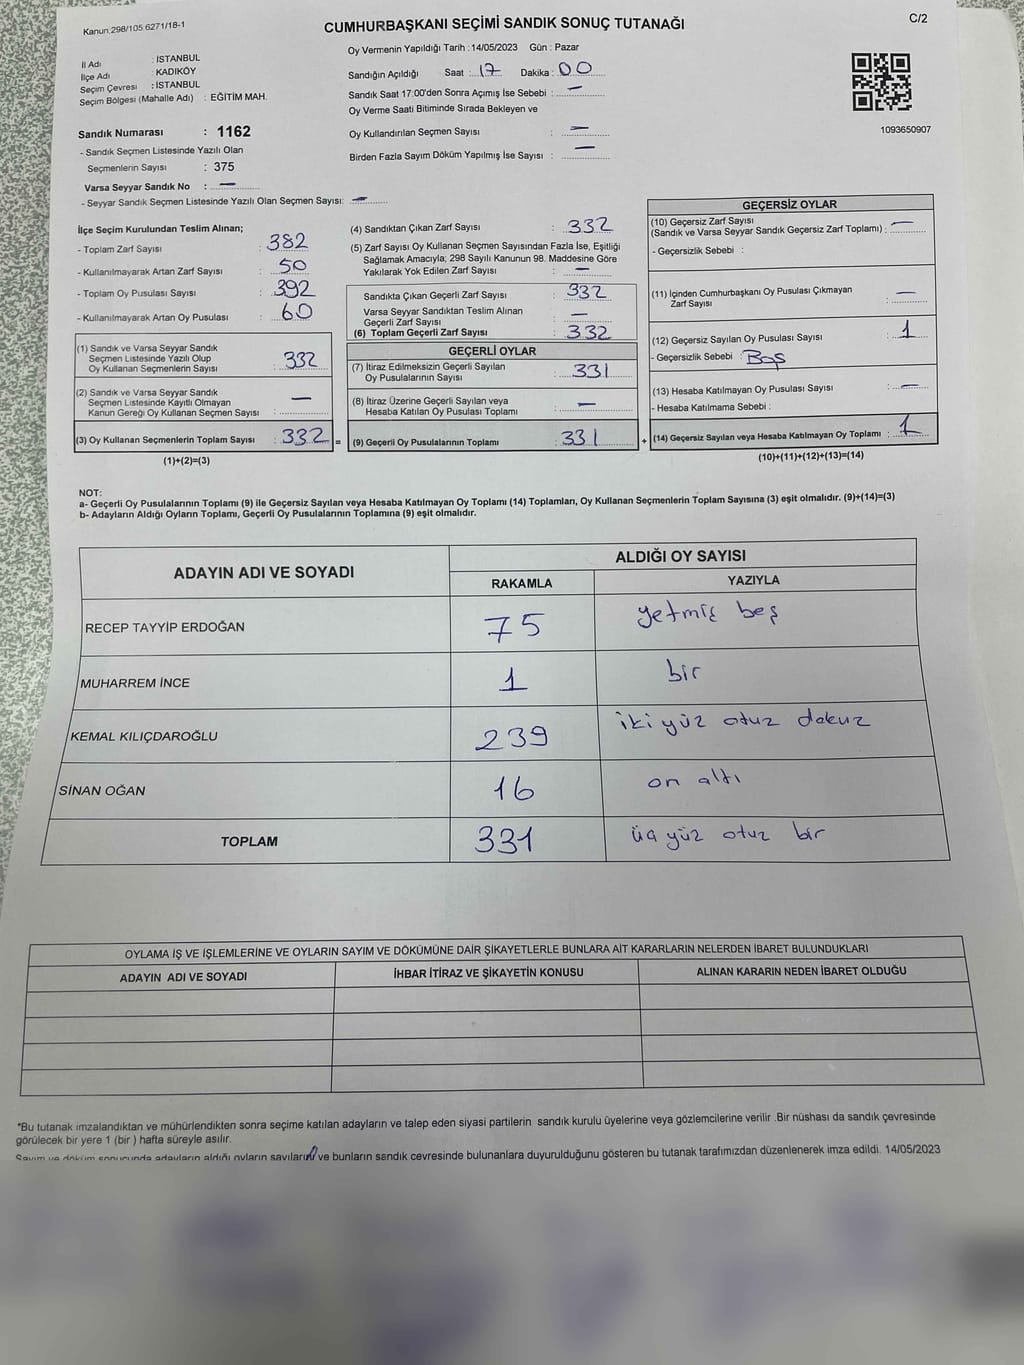 Kanun.298/105 6271/18-1
CUMHURBAŞKANI SEÇİMİ SANDIK SONUÇ TUTANAĞI
C/2
İl Adı : İSTANBUL
İlçe Adı : KADIKÖY
Seçim Çevresi : İSTANBUL
Seçim Bölgesi (Mahalle Adı) : EĞİTİM MAH.
Sandık Numarası : 1162
- Sandık Seçmen Listesinde Yazılı Olan
Seçmenlerin Sayısı : 375
Varsa Seyyar Sandık No : —
- Seyyar Sandık Seçmen Listesinde Yazılı Olan Seçmen Sayısı: —
Oy Vermenin Yapıldığı Tarih : 14/05/2023 Gün : Pazar
Sandığın Açıldığı Saat : 17 Dakika : 00
Sandık Saat 17:00'den Sonra Açımış İse Sebebi : —
Oy Verme Saati Bitiminde Sırada Bekleyen ve
Oy Kullandırılan Seçmen Sayısı : —
Birden Fazla Sayım Döküm Yapılmış İse Sayısı : —
1093650907
İlçe Seçim Kurulundan Teslim Alınan;
- Toplam Zarf Sayısı : 382
- Kullanılmayarak Artan Zarf Sayısı : 50
- Toplam Oy Pusulası Sayısı : 392
- Kullanılmayarak Artan Oy Pusulası : 60
(1) Sandık ve Varsa Seyyar Sandık
Seçmen Listesinde Yazılı Olup
Oy Kullanan Seçmenlerin Sayısı : 332
(2) Sandık ve Varsa Seyyar Sandık
Seçmen Listesinde Kayıtlı Olmayan
Kanun Gereği Oy Kullanan Seçmen Sayısı : —
(3) Oy Kullanan Seçmenlerin Toplam Sayısı : 332 =
(1)+(2)=(3)
(4) Sandıktan Çıkan Zarf Sayısı : 332
(5) Zarf Sayısı Oy Kullanan Seçmen Sayısından Fazla İse, Eşitliği
Sağlamak Amacıyla; 298 Sayılı Kanunun 98. Maddesine Göre
Yakılarak Yok Edilen Zarf Sayısı : —
Sandıkta Çıkan Geçerli Zarf Sayısı : 332
Varsa Seyyar Sandıktan Teslim Alınan
Geçerli Zarf Sayısı : —
(6) Toplam Geçerli Zarf Sayısı : 332
GEÇERLİ OYLAR
(7) İtiraz Edilmeksizin Geçerli Sayılan
Oy Pusulalarının Sayısı : 331
(8) İtiraz Üzerine Geçerli Sayılan veya
Hesaba Katılan Oy Pusulası Toplamı : —
(9) Geçerli Oy Pusulalarının Toplamı : 331 +
GEÇERSİZ OYLAR
(10) Geçersiz Zarf Sayısı
(Sandık ve Varsa Seyyar Sandık Geçersiz Zarf Toplamı) : —
- Geçersizlik Sebebi :
(11) İçinden Cumhurbaşkanı Oy Pusulası Çıkmayan
Zarf Sayısı : —
(12) Geçersiz Sayılan Oy Pusulası Sayısı : 1
- Geçersizlik Sebebi : Boş
(13) Hesaba Katılmayan Oy Pusulası Sayısı : —
- Hesaba Katılmama Sebebi :
(14) Geçersiz Sayılan veya Hesaba Katılmayan Oy Toplamı : 1
(10)+(11)+(12)+(13)=(14)
NOT:
a- Geçerli Oy Pusulalarının Toplamı (9) ile Geçersiz Sayılan veya Hesaba Katılmayan Oy Toplamı (14) Toplamları, Oy Kullanan Seçmenlerin Toplam Sayısına (3) eşit olmalıdır. (9)+(14)=(3)
b- Adayların Aldığı Oyların Toplamı, Geçerli Oy Pusulalarının Toplamına (9) eşit olmalıdır.
ADAYIN ADI VE SOYADI
ALDIĞI OY SAYISI
RAKAMLA YAZIYLA
RECEP TAYYİP ERDOĞAN 75 yetmiş beş
MUHARREM İNCE 1 bir
KEMAL KILIÇDAROĞLU 239 iki yüz otuz dokuz
SİNAN OĞAN 16 on altı
TOPLAM 331 üç yüz otuz bir
OYLAMA İŞ VE İŞLEMLERİNE VE OYLARIN SAYIM VE DÖKÜMÜNE DAİR ŞİKAYETLERLE BUNLARA AİT KARARLARIN NELERDEN İBARET BULUNDUKLARI
ADAYIN ADI VE SOYADI İHBAR İTİRAZ VE ŞİKAYETİN KONUSU ALINAN KARARIN NEDEN İBARET OLDUĞU
*Bu tutanak imzalandıktan ve mühürlendikten sonra seçime katılan adayların ve talep eden siyasi partilerin sandık kurulu üyelerine veya gözlemcilerine verilir .Bir nüshası da sandık çevresinde
görülecek bir yere 1 (bir ) hafta süreyle asılır.
Sayım ve döküm sonucunda adayların aldığı oyların sayılarını ve bunların sandık çevresinde bulunanlara duyurulduğunu gösteren bu tutanak tarafımızdan düzenlenerek imza edildi. 14/05/2023